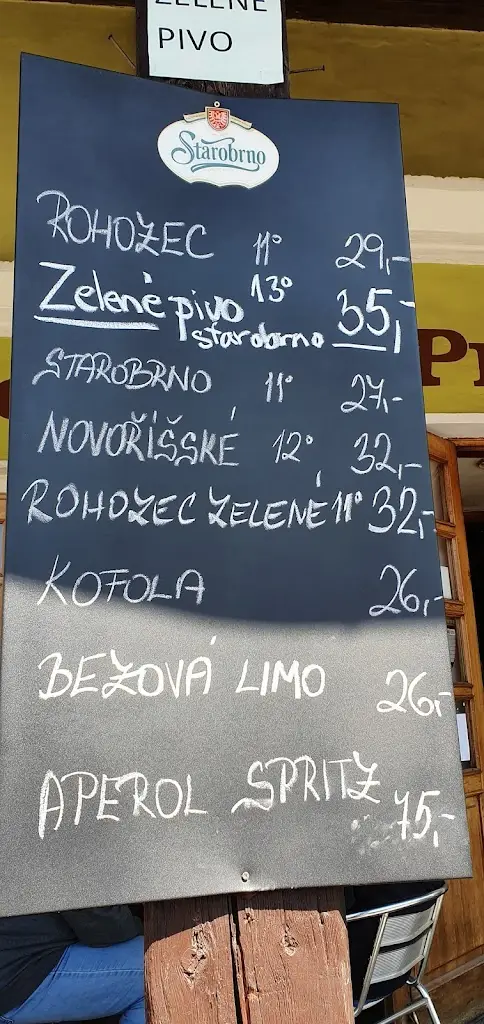 ZELENÉ
PIVO
Starobrno
ROHOZEC 11° 29,-
Zelené pivo 13° 35,-
starobrno
STAROBRNO 11° 27,-
NOVOŘÍŠSKÉ 12° 32,-
ROHOZEC ZELENÉ 11° 32,-
KOFOLA 26,-
BEZOVÁ LIMO 26,-
APEROL SPRITZ 75,-